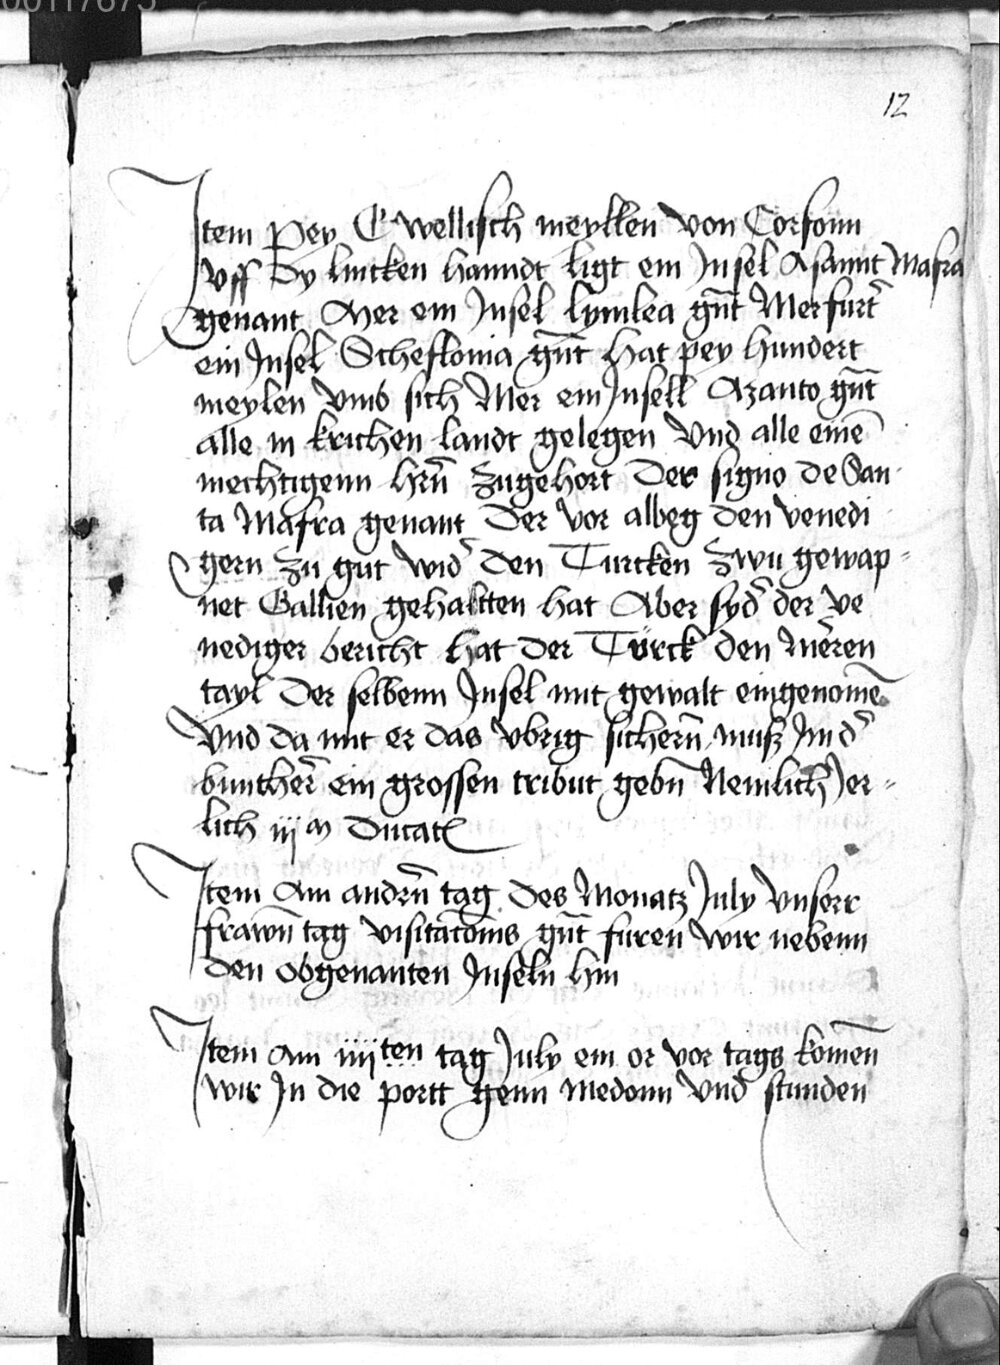 00117675
12
Item Pey C wellisch meyllen von Corfonn
vff dy lincken hanndt ligt ein Insel Asannt Mafra
genant Mer ein Insel lymlea gnt Mer furt
ein Insel Scheflonia gnt hat pey hundert
meylen vmb sich Mer ein Insell Azanto gnt
alle in krichen landt gelegen Vnd alle eine
mechtigenn hrn zugehort Der signo de San
ta Mafra genant Der vor albeg den venedi
gern zu gut wid den Turcken zwu gewap-
net Gallien gehaltten hat Aber syd der ve
nediger bericht hat der Türck den meren
tayl Der selbenn Insel mit gewalt eingenome
Vnd da mit er das vbrig sichern muß Im d
bunther ein grossen tribut gebn Nemlich Jer-
lich iij M Ducat
Item Am andrn tag des Monatz July Vnserr
frawn tag visitationis gnt furen wir nebenn
den obgenanten Inseln hin
Item Am iiijten tag July ein or vor tags komen
wir In die portt genn Medonn Vnd stunden